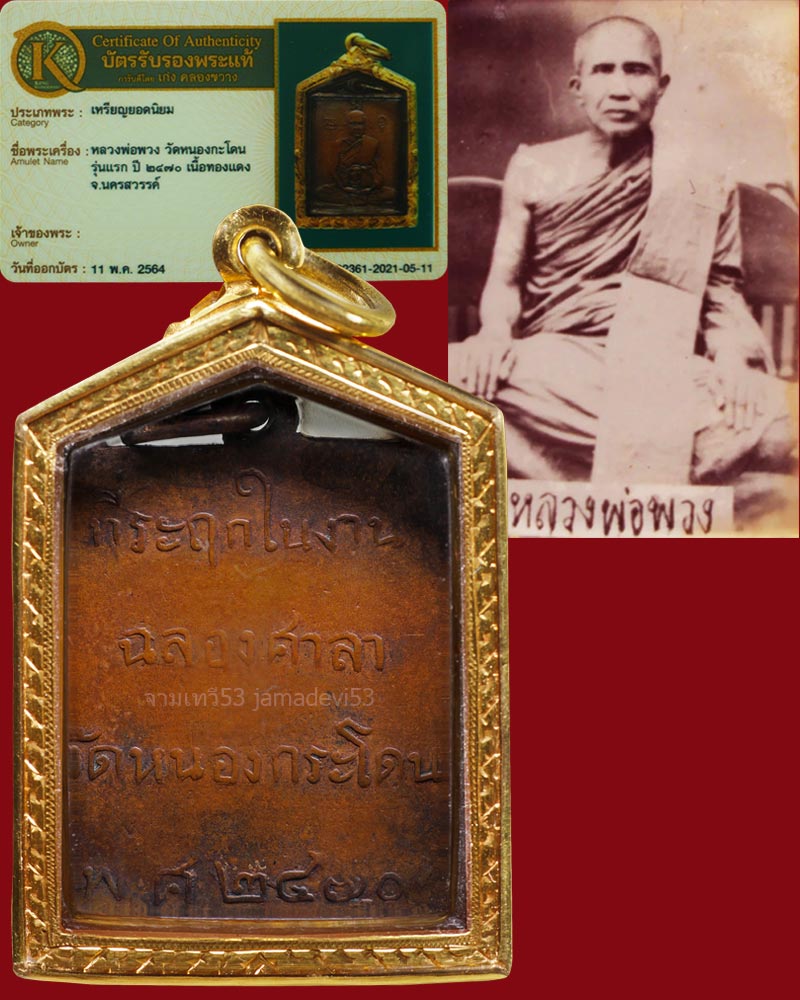 Certificate Of Authenticity
บัตรรับรองพระแท้
การันตีโดย เก่ง คลองขวาง
K
ประเภทพระ : เหรียญยอดนิยม
Category
ชื่อพระเครื่อง : หลวงพ่อพวง วัดหนองกะโดน
Amulet Name
รุ่นแรก ปี ๒๔๗๐ เนื้อทองแดง
จ.นครสวรรค์
เจ้าของพระ :
Owner
วันที่ออกบัตร : 11 พ.ค. 2564
2361-2021-05-11
หลวงพ่อพวง
ที่ระฤกในงาน
ฉลองศาลา
จามเทวี53 jamadevi53
วัดหนองกระโดน
พ.ศ ๒๔๗๐